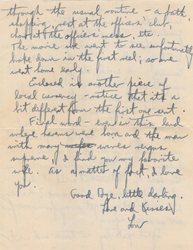 through the usual routine - a bath
shopping, rest at the officers' club,
chow at the officers mess, etc.
The movie we went to see unfortunately
broke down in the first reel, so we
went home early.
Enclosed is another piece of
local currency - notice that it's a
bit different from the first one sent.
Final word - even in this land
where bananas are born and the man
with many wives reigns
supreme, I find you my favorite
wife. As a matter of fact, I love
you.
Good Bye, little darling.
Love and Kisses,